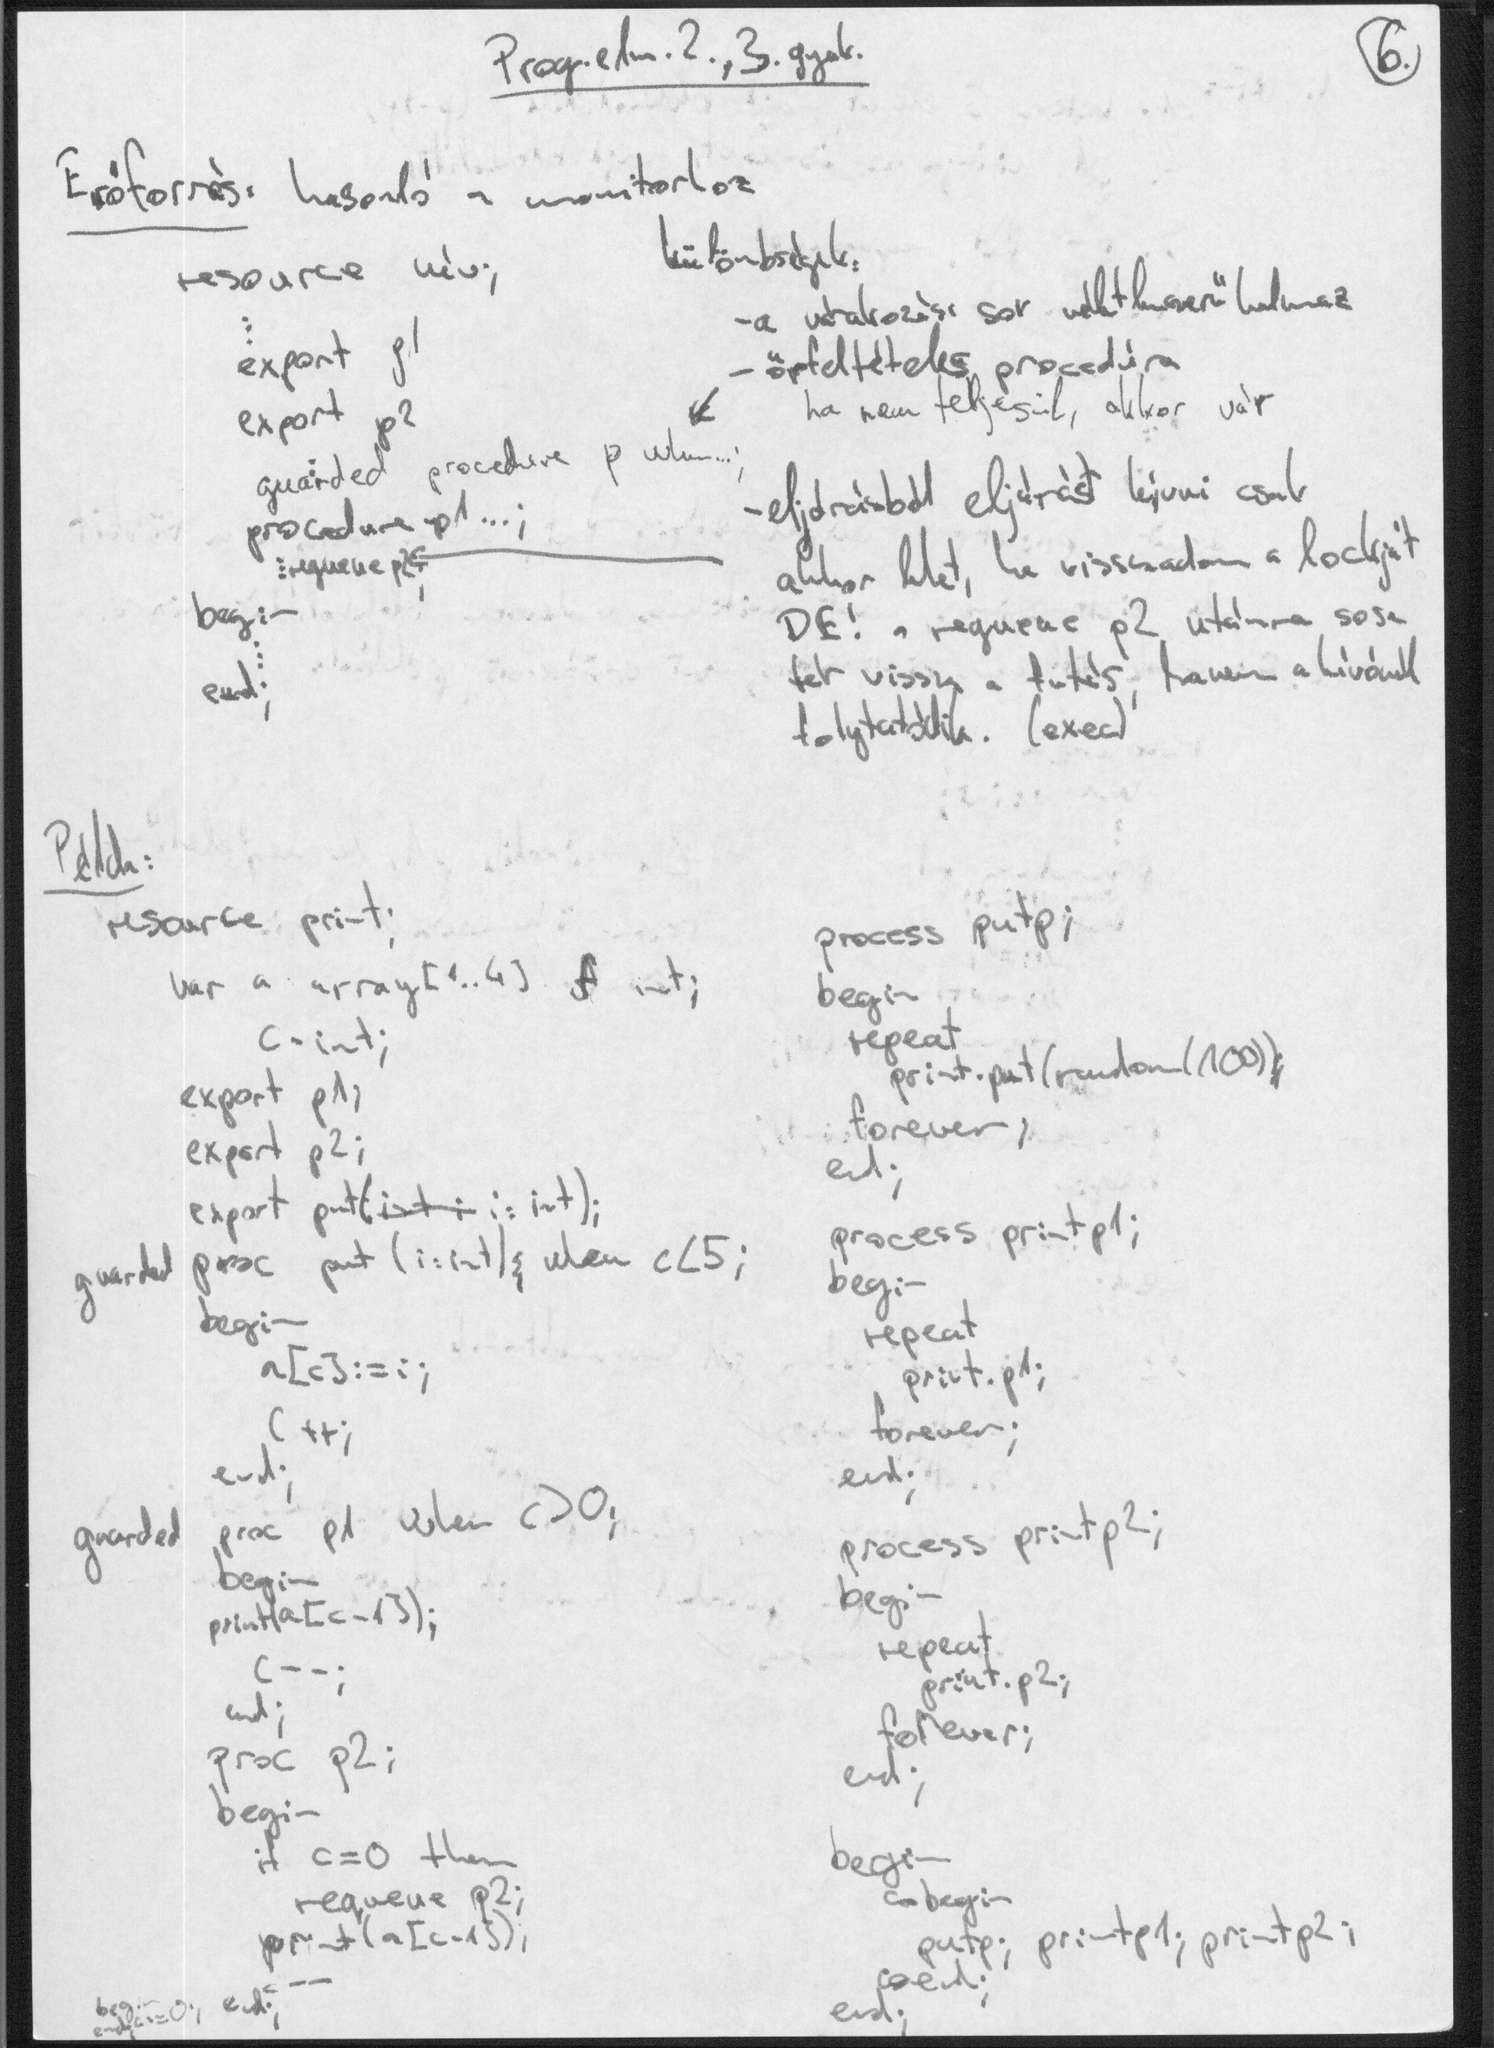 Prog. elm. 2., 3. gyak.
6.
Erőforrás: hasonló a monitorhoz
resource név;
⋮
export p1
export p2
guarded procedure p when...;
procedure p1 ...;
⋮ requeue p2;
begin
⋮
end;
különbségek:
- a várakozási sor véletlenszerű halmaz
- őrfeltételes procedúra
ha nem teljesül, akkor vár
- eljárásból eljárást hívni csak
akkor lehet, ha visszaadom a lockját
DE! a requeue p2 utánra sosem
tér vissza a futás, hanem a hívónál
folytatódik. (exec)
Példa:
resource print;
var a array[1..4] of int;
c - int;
export p1;
export p2;
export put(int i i: int);
guarded proc put (i:int); when c<5;
begin
a[c]:=i;
c++;
end;
guarded proc p1 when c>0;
begin
print(a[c-1]);
c--;
end;
proc p2;
begin
if c=0 then
requeue p2;
print(a[c-1]);
c--
end;
begin
c:=0;
end;
process putp;
begin
repeat
print.put(random(100));
forever;
end;
process printp1;
begin
repeat
print.p1;
forever;
end;
process printp2;
begin
repeat
print.p2;
forever;
end;
begin
cobegin
putp; printp1; printp2;
coend;
end;